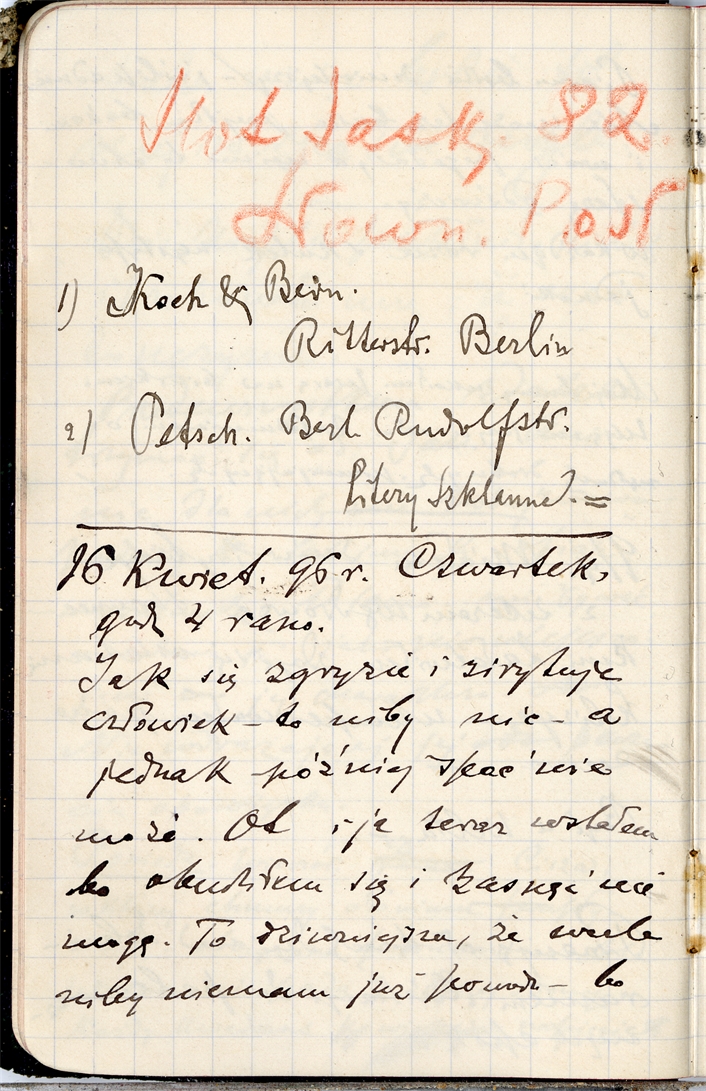 Hot Jask. 82
Nown. Post
1) Koch & Bern.
Ritterstr. Berlin
2) Petsch. Berl. Rudolfstr.
litery szklanne. =
16 Kwiet. 96 r. Czwartek,
godz 4 rano.
Jak się zgryzie i zirytuje
człowiek – to niby nic – a
jednak później spać nie
może. Ot i ja teraz wstałem
bo obudziłem się i zasnąć nie
mogę. To dziwniejsza, że wcale
niby niemam już powodu – bo